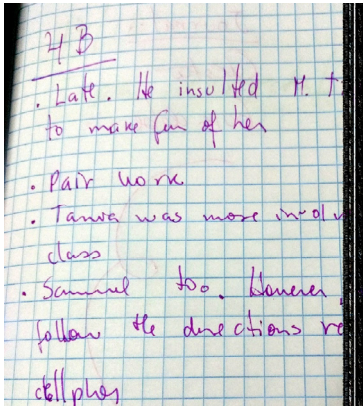 4B
. Late. He insulted M. t
to make fun of her
. Pair work
. Tania was more involv
class
. Samuel too. However,
follow the directions re
cellphes